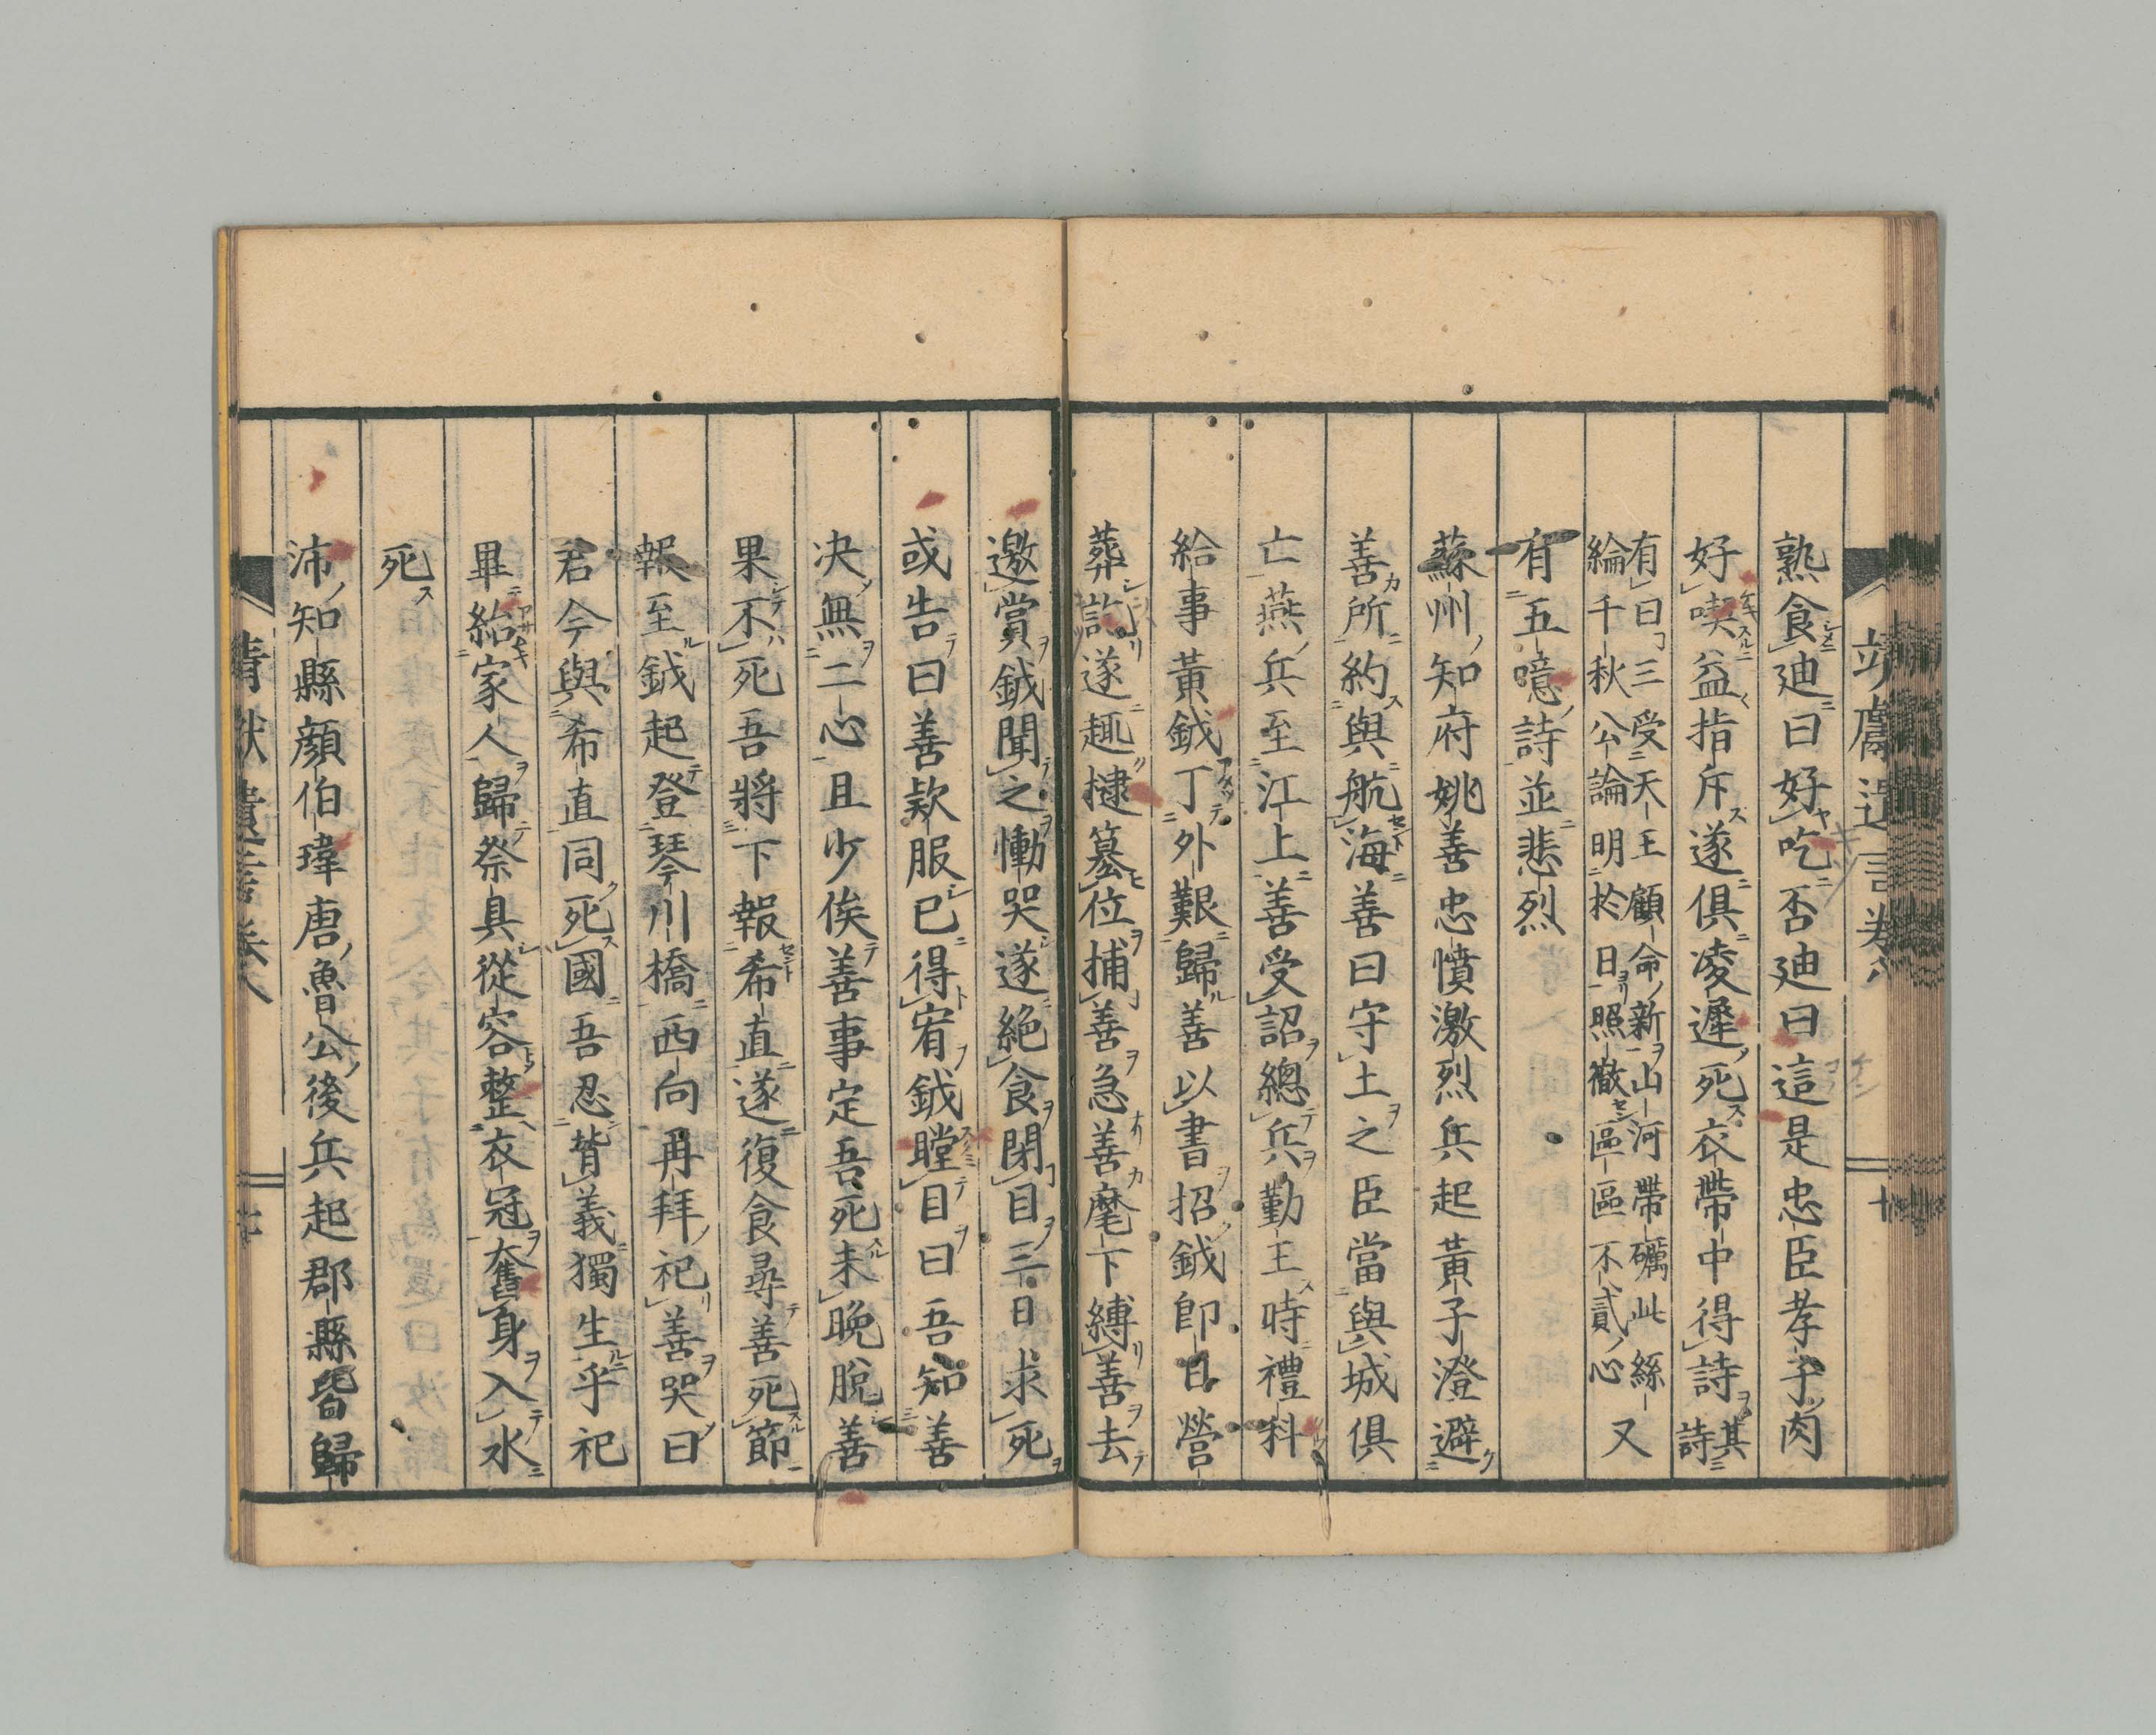 熟食廸曰好吃否廸曰這是忠臣孝子肉
好喫益指斥遂俱凌遲死衣帶中得詩其詩
有曰三受天王顧命新山河帶礪此絲
綸千秋公論明於日照徹區區不貳心又
有五噫詩並悲烈
蘇州知府姚善忠憤激烈兵起黃子澄避
善所約與航海善曰守土之臣當與城俱
亡燕兵至江上善受詔總兵勤王時禮科
給事黃鉞丁外艱歸善以書招鉞即日營
葬訖遂趣墓位捕善急善麾下縛善去
邀賞鉞聞之慟哭遂絕食閉目三日求死
或告曰善款服已得宥鉞瞠目曰吾知善
决無二心且少俟善事定吾死未晚脫善
果不死吾將下報希直遂復食尋善死節
報至鉞起登琴川橋西向再拜祀善哭曰
君今與希直同死國吾忍背義獨生乎祀
畢紿家人歸祭具從容整衣冠奮身入水
死
沛知縣顏伯瑋唐魯公後兵起郡縣皆歸
靖獻遺言卷八